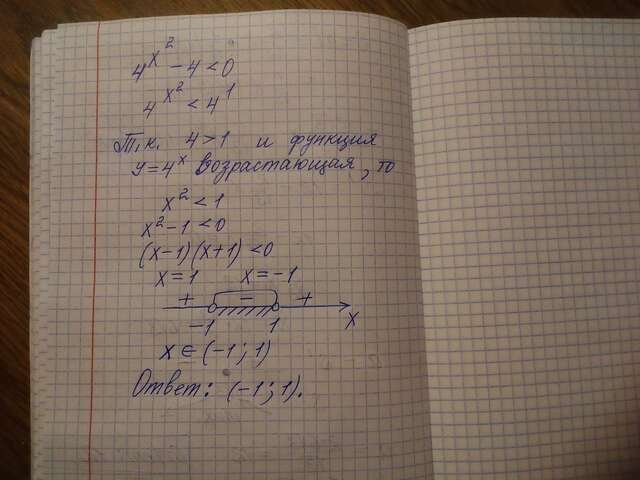 4^x^2 - 4 < 0
4^x^2 < 4^1
Т.к. 4 > 1 и функция
y = 4^x возрастающая, то
x^2 < 1
x^2 - 1 < 0
(x-1)(x+1) < 0
x = 1 x = -1
+ - +
-1 1 x
x ∈ (-1; 1)
Ответ: (-1; 1).